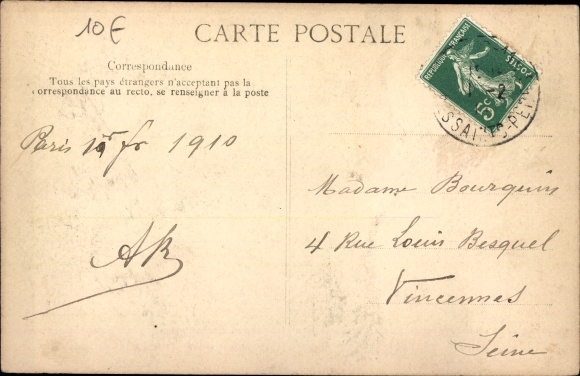 10€
CARTE POSTALE
Correspondance
Tous les pays étrangers n'acceptant pas la
correspondance au recto, se renseigner à la poste
REPUBLIQUE FRANÇAISE
POSTES
5c
Paris 1910
AB
Madame Bourguin
4 Rue Louis Besquel
Vincennes
Seine